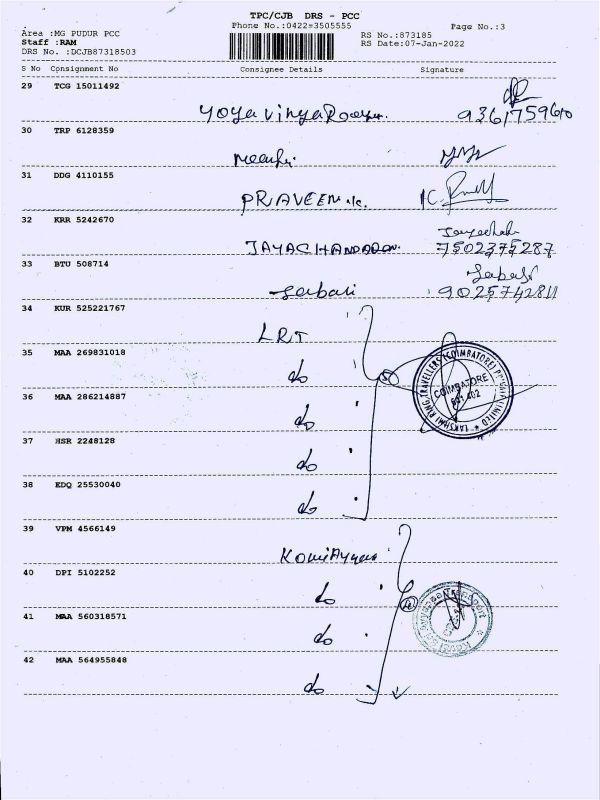 TPC/CJB DRS - PCC
Phone No.:0422-3505555
Page No.:3
Area :MG PUDUR PCC
Staff :RAM
DRS No. :DCJB87318503
RS No.:873185
RS Date:07-Jan-2022
S No Consignment No Consignee Details Signature
29 TCG 15011492
9361759610
30 TRP 6128359
31 DDG 4110155
PRAVEEN K.
32 KRR 5242670
JAYACHANDRAN.
7502375287
33 BTU 508714
Sabari
Sabari
9025742811
34 KUR 525221767
LRT
35 MAA 269831018
do
5
LAKSHMI RANGA TRAVELLERS (COIMBATORE) PRIVATE LIMITED
COIMBATORE
641 402
36 MAA 286214887
do
37 HSR 2248128
do
38 EDQ 25530040
do
39 VPM 4566149
40 DPI 5102252
do
41 MAA 560318571
do
42 MAA 564955848
do